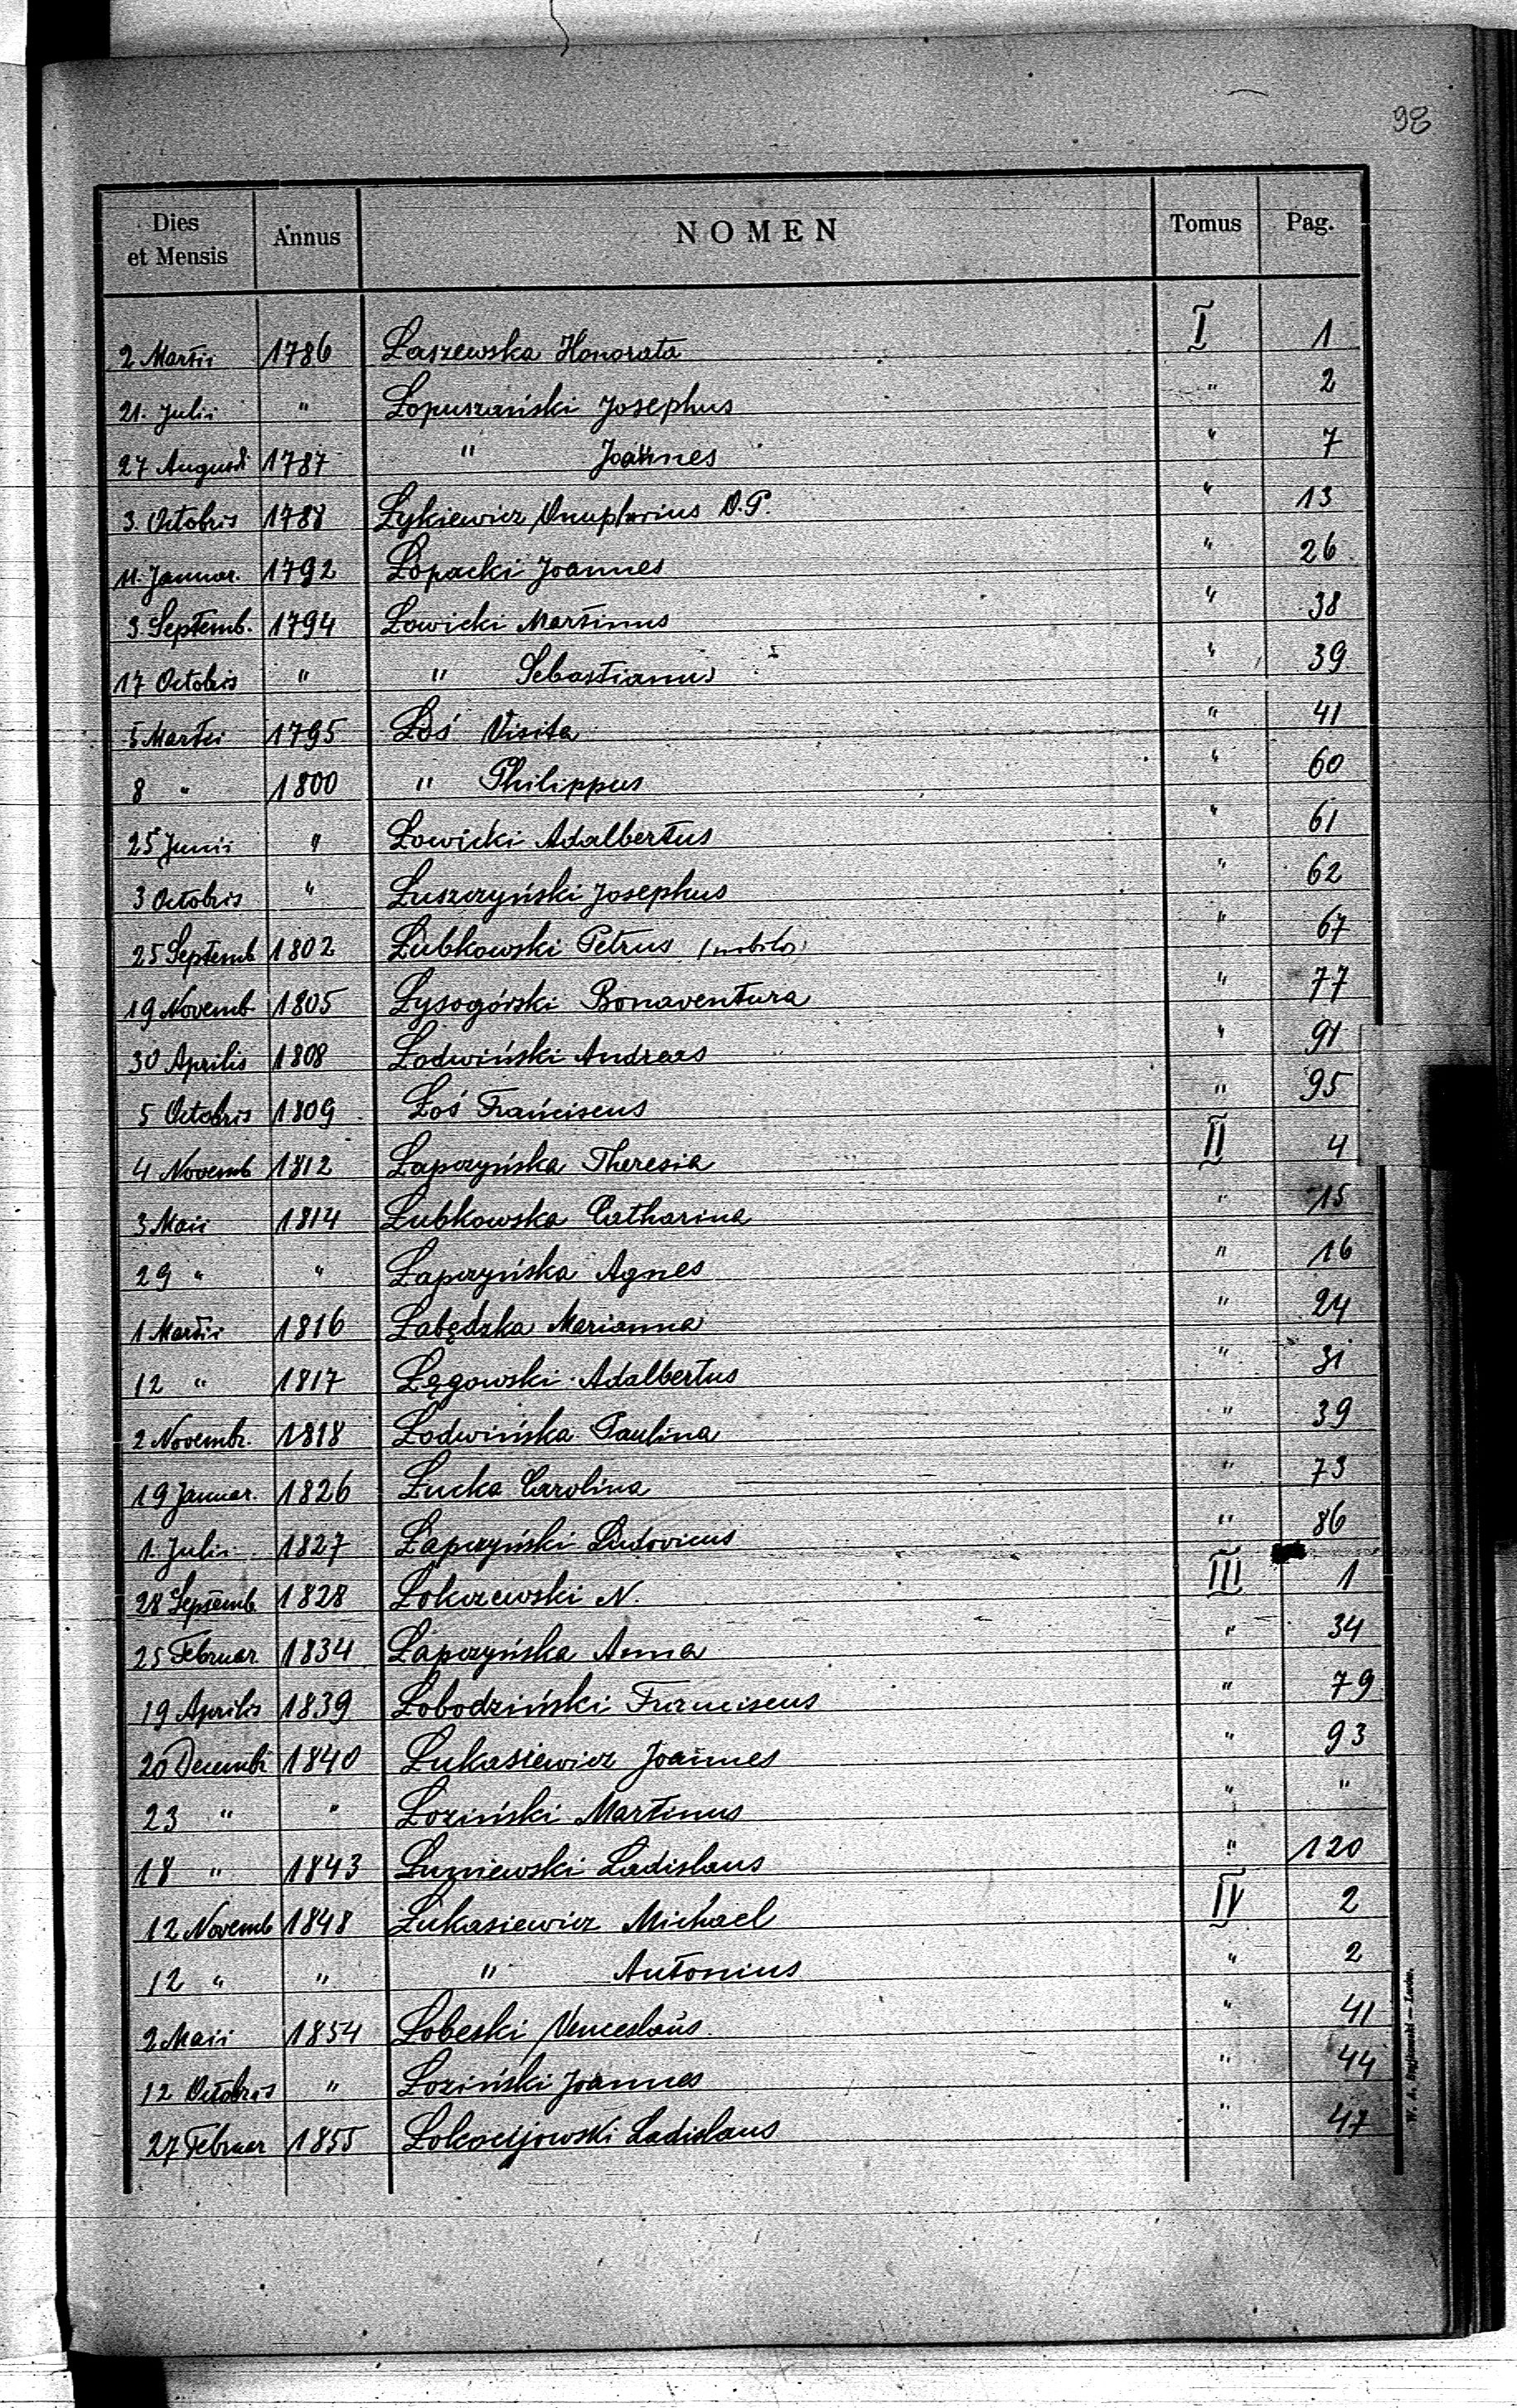 98
Dies et Mensis Annus NOMEN Tomus Pag.
2 Martii 1786 Łaszewska Honorata I 1
21. Julii " Łopuszański Josephus " 2
27 Augusti 1787 " Joannes " 7
3. Octobris 1788 Łykiewicz Onuphrius O.P. " 13
11. Januar. 1792 Łopacki Joannes " 26
3. Septemb. 1794 Łowicki Martinus " 38
17 Octobris " " Sebastianus " 39
5 Martii 1795 Łoś Visita " 41
8 " 1800 " Philippus " 60
25 Junii " Łowicki Adalbertus " 61
3 Octobris " Łuszczyński Josephus " 62
25 Septemb 1802 Łubkowski Petrus (nobilis) " 67
19 Novemb 1805 Łysogórski Bonaventura " 77
30 Aprilis 1808 Łodwiński Andreas " 91
5 Octobris 1809 Łoś Franciscus " 95
4 Novemb 1812 Łapczyńska Theresia II 4
3 Maii 1814 Łubkowska Catharina " 15
29 " " Łapczyńska Agnes " 16
1 Martii 1816 Łabędzka Marianna " 24
12 " 1817 Łęgowski Adalbertus " 31
2 Novembr. 1818 Łodwińska Paulina " 39
19 Januar. 1826 Łucka Carolina " 73
1. Julii 1827 Łapczyński Ludovicus " 86
28 Septemb. 1828 Łokczewski N. III 1
25 Februar. 1834 Łapczyńska Anna " 34
19 Aprilis 1839 Łobodziński Franciscus " 79
20 Decembr 1840 Łukasiewicz Joannes " 93
23 " " Łoziński Martinus " "
18 " 1843 Łuzniewski Ladislaus " 120
12 Novemb 1848 Łukasiewicz Michael IV 2
12 " " " Antonius " 2
2 Maii 1854 Łobeski Venceslaus " 41
12 Octobris " Łoziński Joannes " 44
27 Februar 1855 Ladislaus " 47